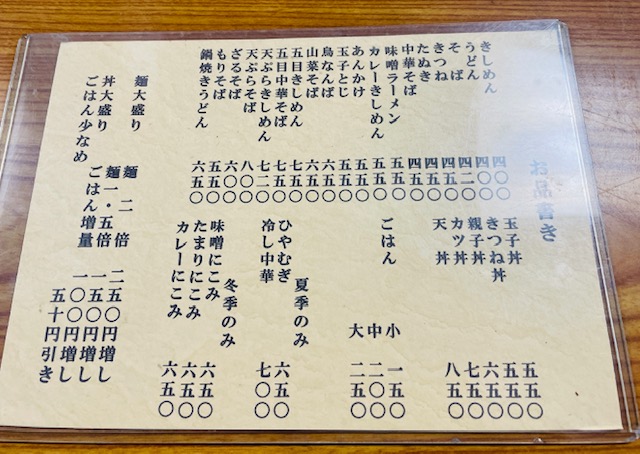 お品書き
きしめん
うどん
そば
きつね
たぬき
中華そば
味噌ラーメン
カレーきしめん
あんかけ
玉子とじ
鳥なんば
山菜そば
五目きしめん
五目中華そば
天ぷらきしめん
天ぷらそば
ざるそば
もりそば
鍋焼きうどん
四〇〇
四〇〇
四二〇
四五〇
四五〇
四五〇
五五〇
五五〇
五五〇
五五〇
六五〇
六五〇
七五〇
七五〇
七二〇
八〇〇
六〇〇
五五〇
六五〇
玉子丼 五五〇
きつね丼 五五〇
親子丼 六五〇
カツ丼 七五〇
天丼 八五〇
ごはん
小 一五〇
中 二〇〇
大 二五〇
夏季のみ
ひやむぎ 六五〇
冷し中華 七〇〇
冬季のみ
味噌にこみ 六五〇
たまりにこみ 六五〇
カレーにこみ 六五〇
麺大盛り 麺二倍 二五〇円増し
麺一・五倍 一五〇円増し
丼大盛り ごはん増量 一〇〇円増し
ごはん少なめ 五十円引き